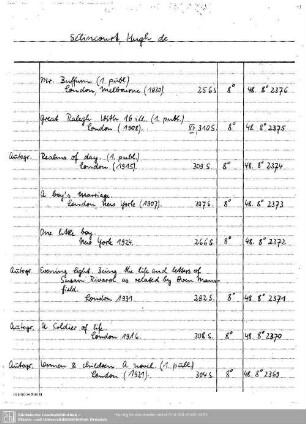 Sélincourt, Hugh de
Mr. Buffum (1. publ.)
London, Melbourne (1930) 256 S. 8° 48. 8° 2376
Great Ralegh. With 16 ill. (1. publ.)
London (1908). 310 S. 8° 48. 8° 2375
Autogr. Realms of day. (1. publ.)
London (1915). 309 S. 8° 48. 8° 2374
A boy's marriage.
London, New York (1907). 8° 48. 8° 2373
One little boy.
New York 1924. 266 S. 8° 48. 8° 2372
Autogr. Evening light. Being the life and letters of
Susan as related by Man-
field.
London 1931. 282 S. 8° 48. 8° 2371
Autogr. A Soldier of life.
London 1916. 308 S. 8° 48. 8° 2370
Autogr. Women & children. A novel. (1. publ.)
London (1921). 304 S. 8° 48. 8° 2369